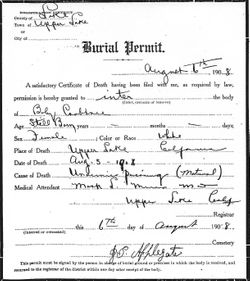 County of Lake
Town of Upper Lake
or
City of
Burial Permit.
August 6th 1908
A satisfactory Certificate of Death having been filed with me, as required by law,
permission is hereby granted to inter
(Inter, cremate or remove)
the body of Baby Crabtree
Age Still Born years – months – days
Sex Female ; Color or Race White
Place of Death Upper Lake California
Date of Death Aug. 5 – 1908
Cause of Death
Medical Attendant M.D.
Upper Lake
Registrar
this 6th day of August 1908
(Interred or cremated)
Cemetery
J.P. Applegate
This permit must be signed by the person in charge of burial ground or premises in which the body is interred, and
returned to the registrar of the district within one day after receipt of the body.